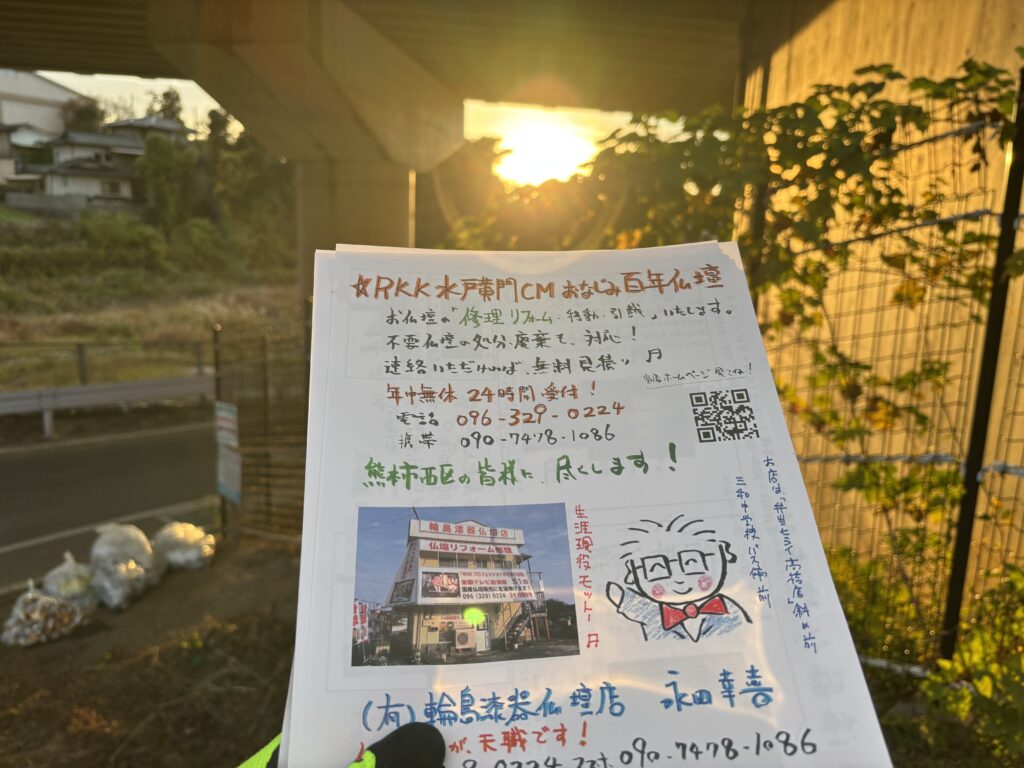 ☆RKK水戸黄門CMおなじみ百年仏壇
お仏壇の「修理リフォーム・移動・引越」いたします。
不要仏壇の処分・廃棄も、対応!
連絡いただければ、無料見積り
年中無休 24時間受付!
当店ホームページ見てね!
電話 096-329-0224
携帯 090-7478-1086
熊本市西区の皆様に、尽くします!
お店は、「弁当ヒライ高橋店」斜め前
三和中学校バス停前
生涯現役モットー
輪島漆器仏壇店
仏壇リフォーム修理
096(329)0224
(有)輪島漆器仏壇店 永田幸喜
が、天職です!
0224 スマホ 090-7478-1086